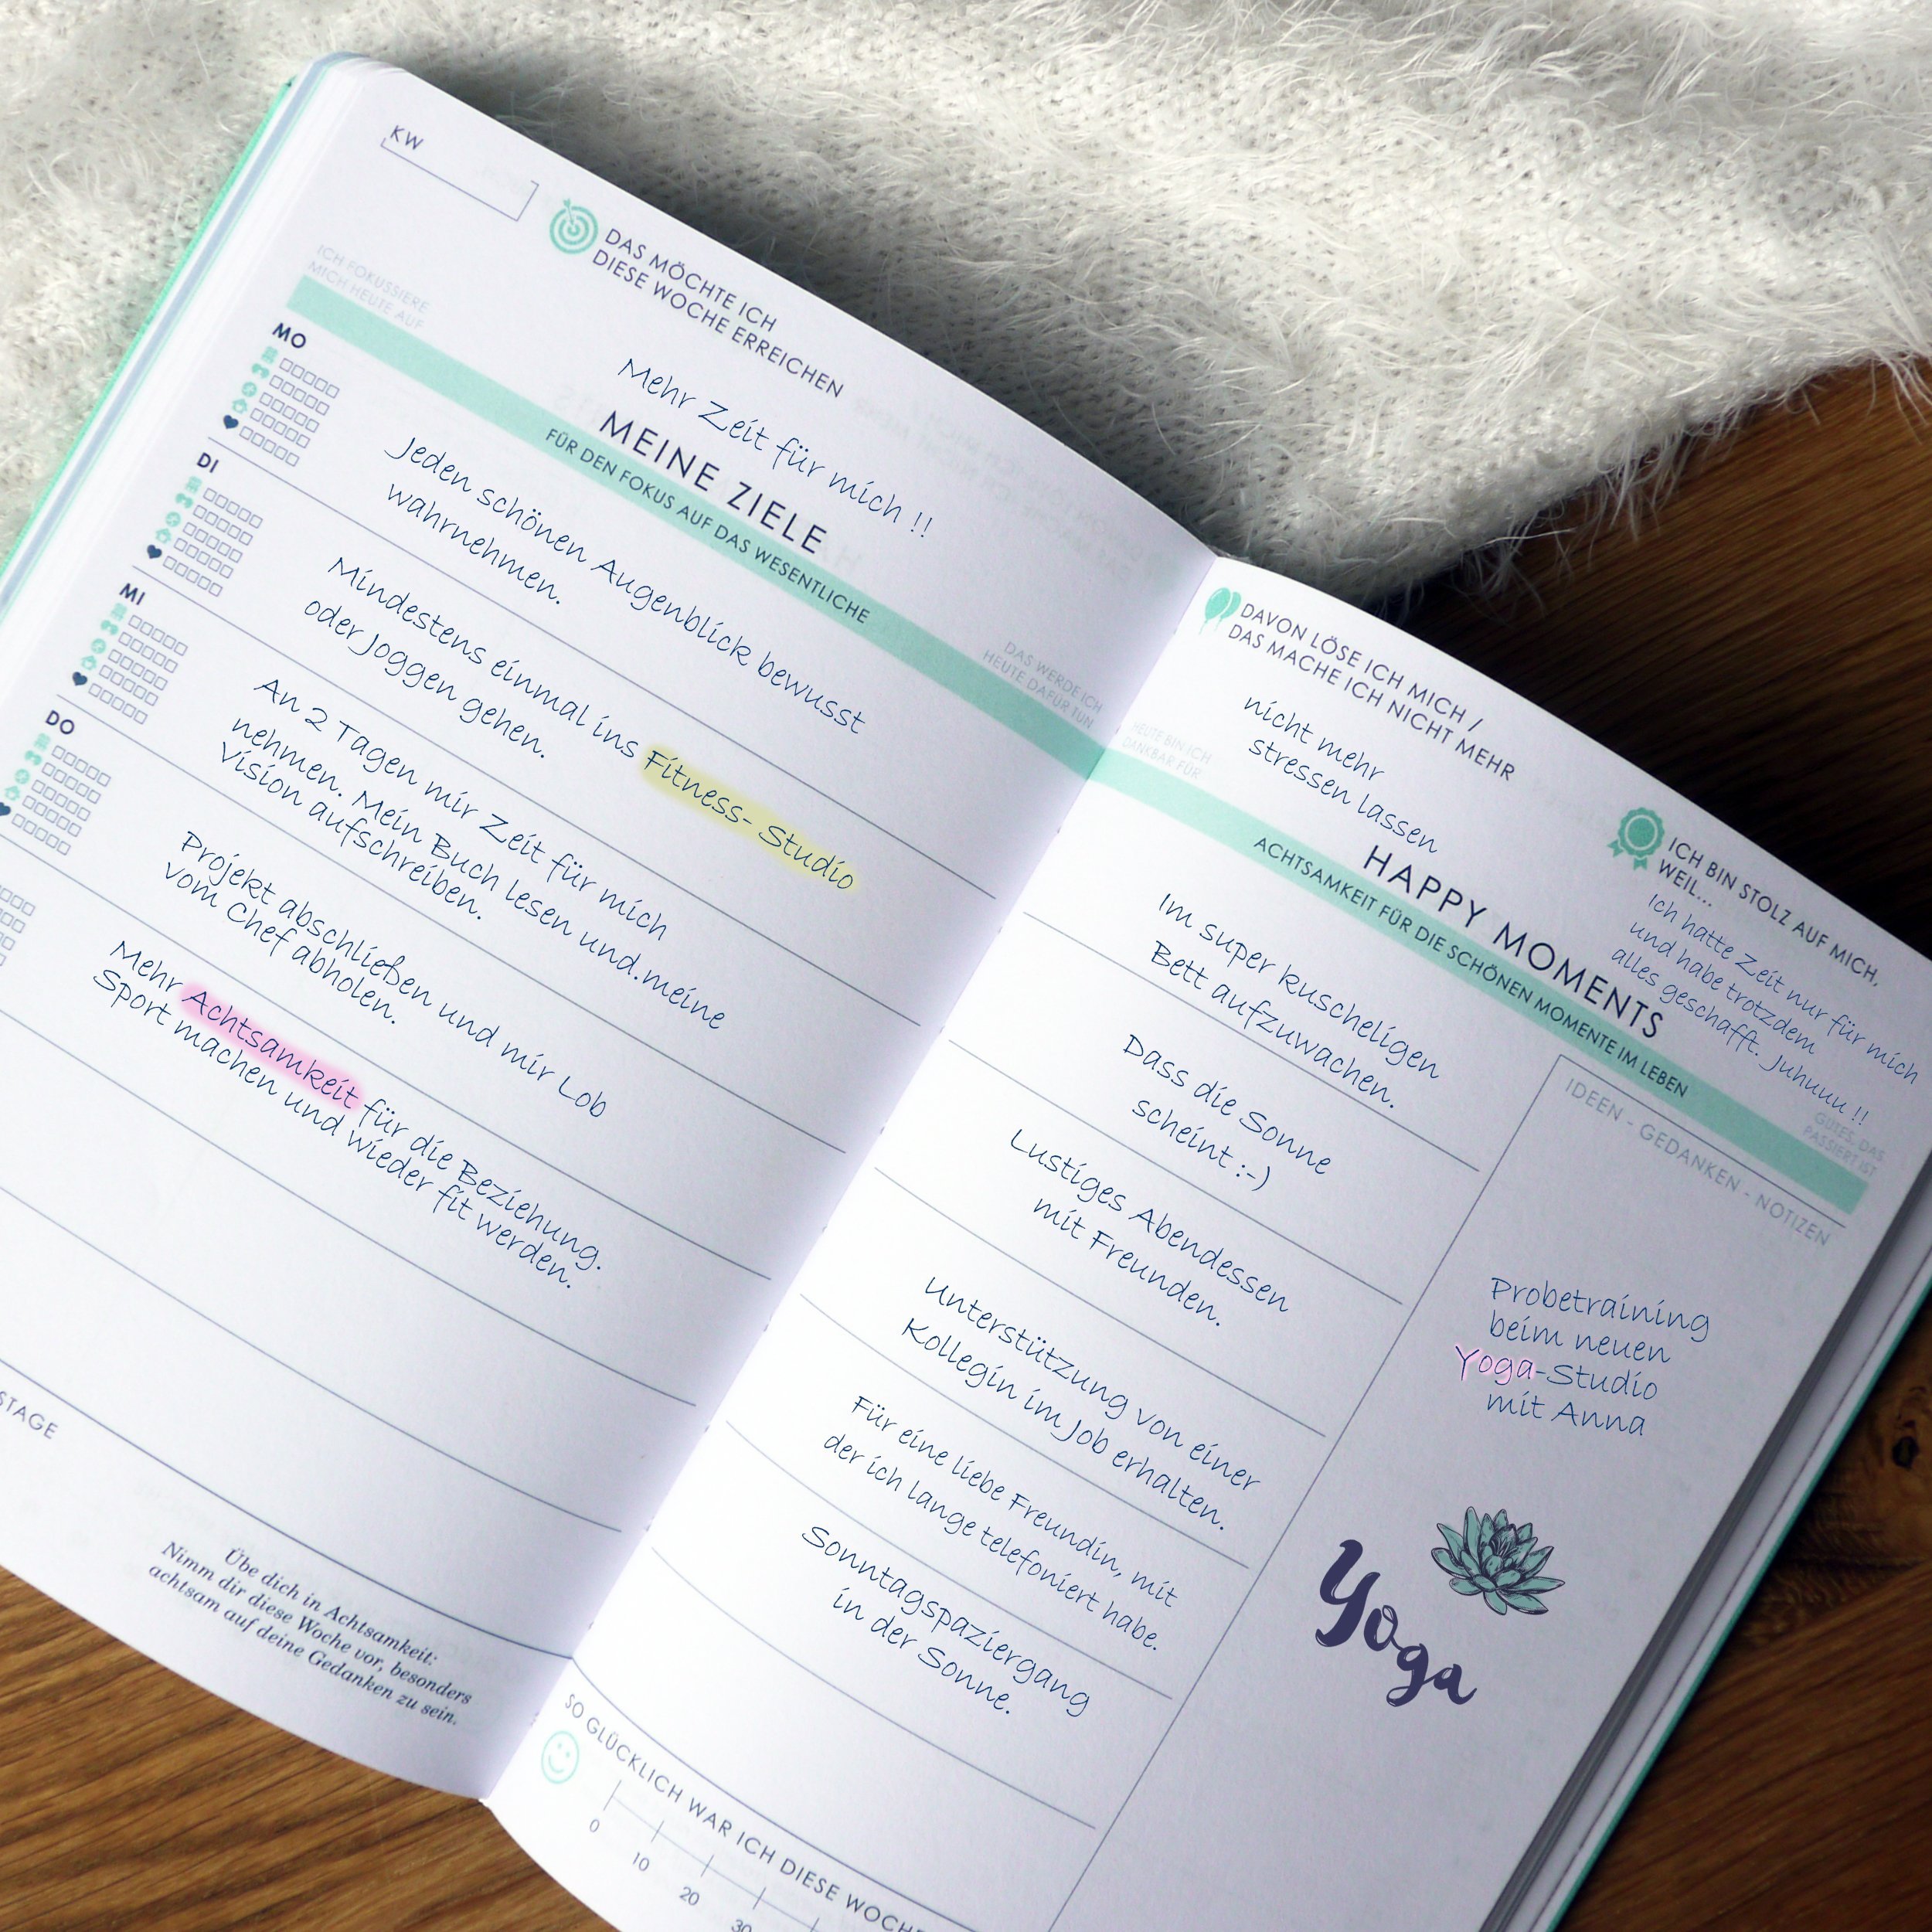 KW
DAS MÖCHTE ICH
DIESE WOCHE ERREICHEN
Mehr Zeit für mich !!
ICH FOKUSSIERE
MICH HEUTE AUF
MEINE ZIELE
FÜR DEN FOKUS AUF DAS WESENTLICHE
DAS WERDE ICH
HEUTE DAFÜR TUN
MO
Jeden schönen Augenblick bewusst
wahrnehmen.
DI
Mindestens einmal ins Fitness- Studio
oder Joggen gehen.
MI
An 2 Tagen mir Zeit für mich
nehmen. Mein Buch lesen und.meine
Vision aufschreiben.
DO
Projekt abschließen und mir Lob
vom Chef abholen.
Mehr Achtsamkeit für die Beziehung.
Sport machen und wieder fit werden.
STAGE
Übe dich in Achtsamkeit:
Nimm dir diese Woche vor, besonders
achtsam auf deine Gedanken zu sein.
DAVON LÖSE ICH MICH /
DAS MACHE ICH NICHT MEHR
nicht mehr
stressen lassen
ICH BIN STOLZ AUF MICH,
WEIL...
Ich hatte Zeit nur für mich
und habe trotzdem
alles geschafft. Juhuuu !!
HEUTE BIN ICH
DANKBAR FÜR
HAPPY MOMENTS
ACHTSAMKEIT FÜR DIE SCHÖNEN MOMENTE IM LEBEN
GUTES, DAS
PASSIERT IST
Im super kuscheligen
Bett aufzuwachen.
Dass die Sonne
scheint :-)
Lustiges Abendessen
mit Freunden.
Unterstützung von einer
Kollegin im Job erhalten.
Für eine liebe Freundin, mit
der ich lange telefoniert habe.
Sonntagspaziergang
in der Sonne.
IDEEN - GEDANKEN - NOTIZEN
Probetraining
beim neuen
Yoga-Studio
mit Anna
Yoga
SO GLÜCKLICH WAR ICH DIESE WOCHE
0
10
20
30